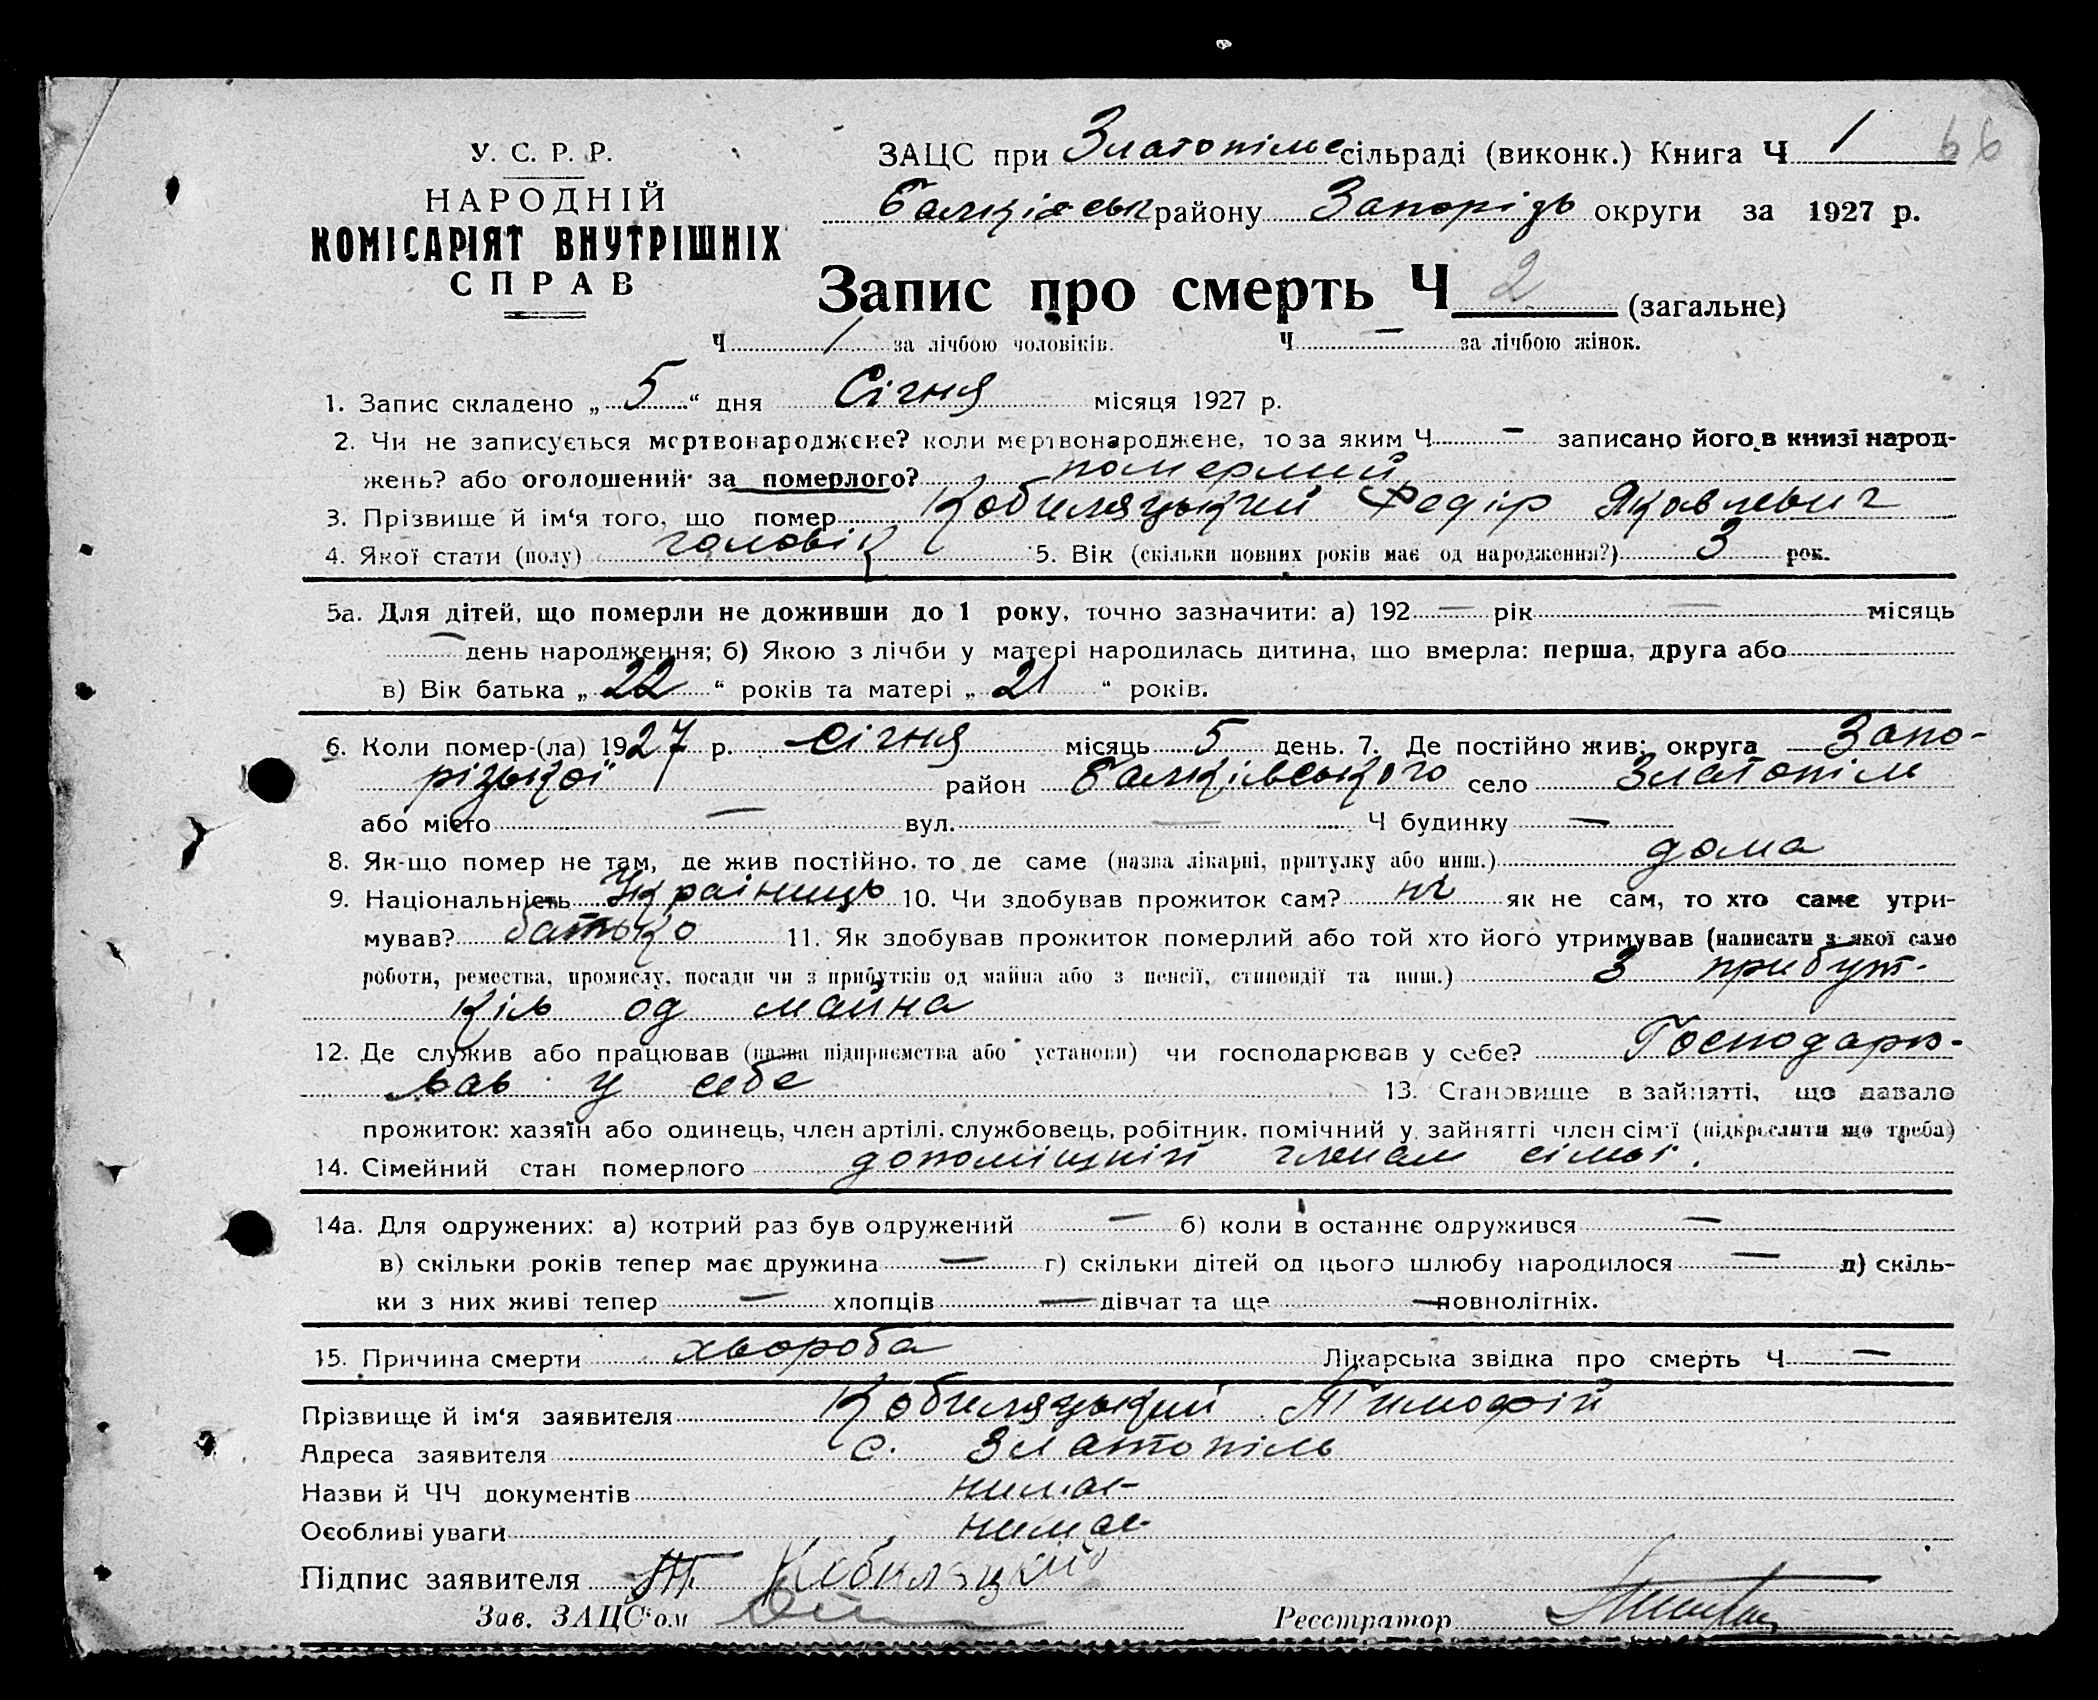 У. С. Р. Р.
НАРОДНІЙ
КОМІСАРІЯТ ВНУТРІШНІХ
СПРАВ
ЗАЦС при Златопільс сільраді (виконк.) Книга Ч 1 66
Балківськ району Запорізь округи за 1927 р.
Запис про смерть Ч 2 (загальне)
Ч 1 за лічбою чоловіків. Ч — за лічбою жінок.
1. Запис складено „ 5 “ дня Січня місяця 1927 р.
2. Чи не записується мертвонароджене? коли мертвонароджене, то за яким Ч — записано його в книзі народ-
жень? або оголошений за померлого? померлий
3. Прізвище й ім‘я того, що помер Кобиляцький Федір Яковлевич
4. Якої стати (полу) чоловік 5. Вік (скільки повних років має од народження?) 3 рок.
5а. Для дітей, що померли не доживши до 1 року, точно зазначити: а) 192 — рік — місяць
— день народження; б) Якою з лічби у матері народилась дитина, що вмерла: перша, друга або
в) Вік батька „ 22 “ років та матері „ 21 “ років.
6. Коли помер-(ла) 1927 р. січня місяць 5 день. 7. Де постійно жив: округа Запо-
різької район Балківського село Златопіль
або місто — вул. — Ч будинку —
8. Як-що помер не там, де жив постійно, то де саме (назва лікарні, притулку або инш.) дома
9. Національність Українець 10. Чи здобував прожиток сам? ні як не сам, то хто саме утри-
мував? батько 11. Як здобував прожиток померлий або той хто його утримував (написати з якої саме
роботи, ремества, промислу, посади чи з прибутків од майна або з пенсії, стипендії та инш.) З прибут-
ків од майна
12. Де служив або працював (назва підприємства або установи) чи господарював у себе? Господарю-
вав у себе 13. Становище в зайнятті, що давало
прожиток: хазяїн або одинець, член артілі, службовець, робітник, помічний у зайнятті член сім‘ї (підкреслити що треба)
14. Сімейний стан померлого допоміжний членам сімьї.
14а. Для одружених: а) котрий раз був одружений — б) коли в останнє одружився —
в) скільки років тепер має дружина — г) скільки дітей од цього шлюбу народилося — д) скіль-
ки з них живі тепер — хлопців — дівчат та ще — повнолітніх.
15. Причина смерти хвороба Лікарська звідка про смерть Ч —
Прізвище й ім‘я заявителя Кобиляцький Тимофій
Адреса заявителя с. Златопіль
Назви й ЧЧ документів нимає
Особливі уваги нимає
Підпис заявителя Т. Кобиляцкій
Зав. ЗАЦС‘ом
Реєстратор